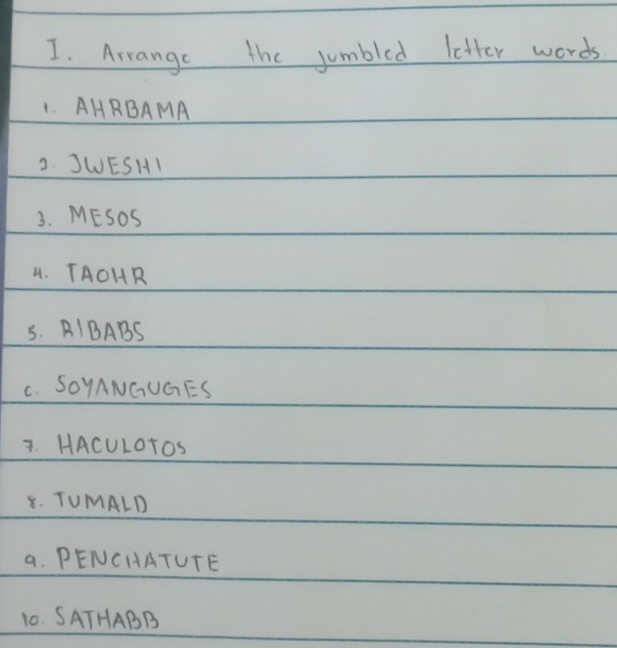 I. Arrange the jumbled letter words.
1. AHRBAMA
2. JWESHI
3. MESOS
4. TAOHR
5. RIBABS
6. SOYANGUGES
7. HACULOTOS
8. TUMALD
9. PENCHATUTE
10. SATHABB